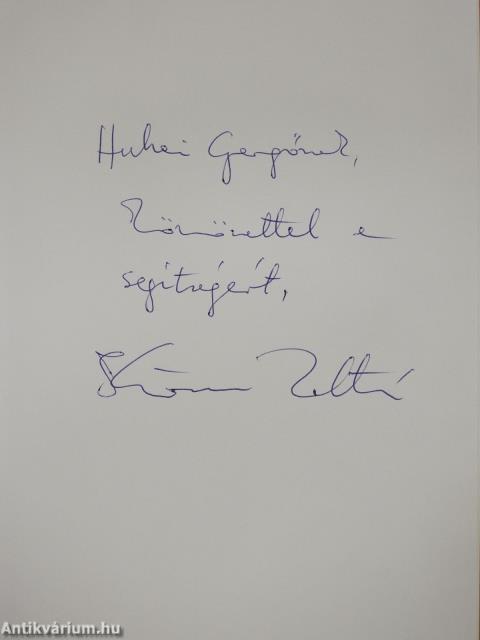 Gergőnek,
Köszönettel a
segítségért,
Zoltán
Antikvárium.hu